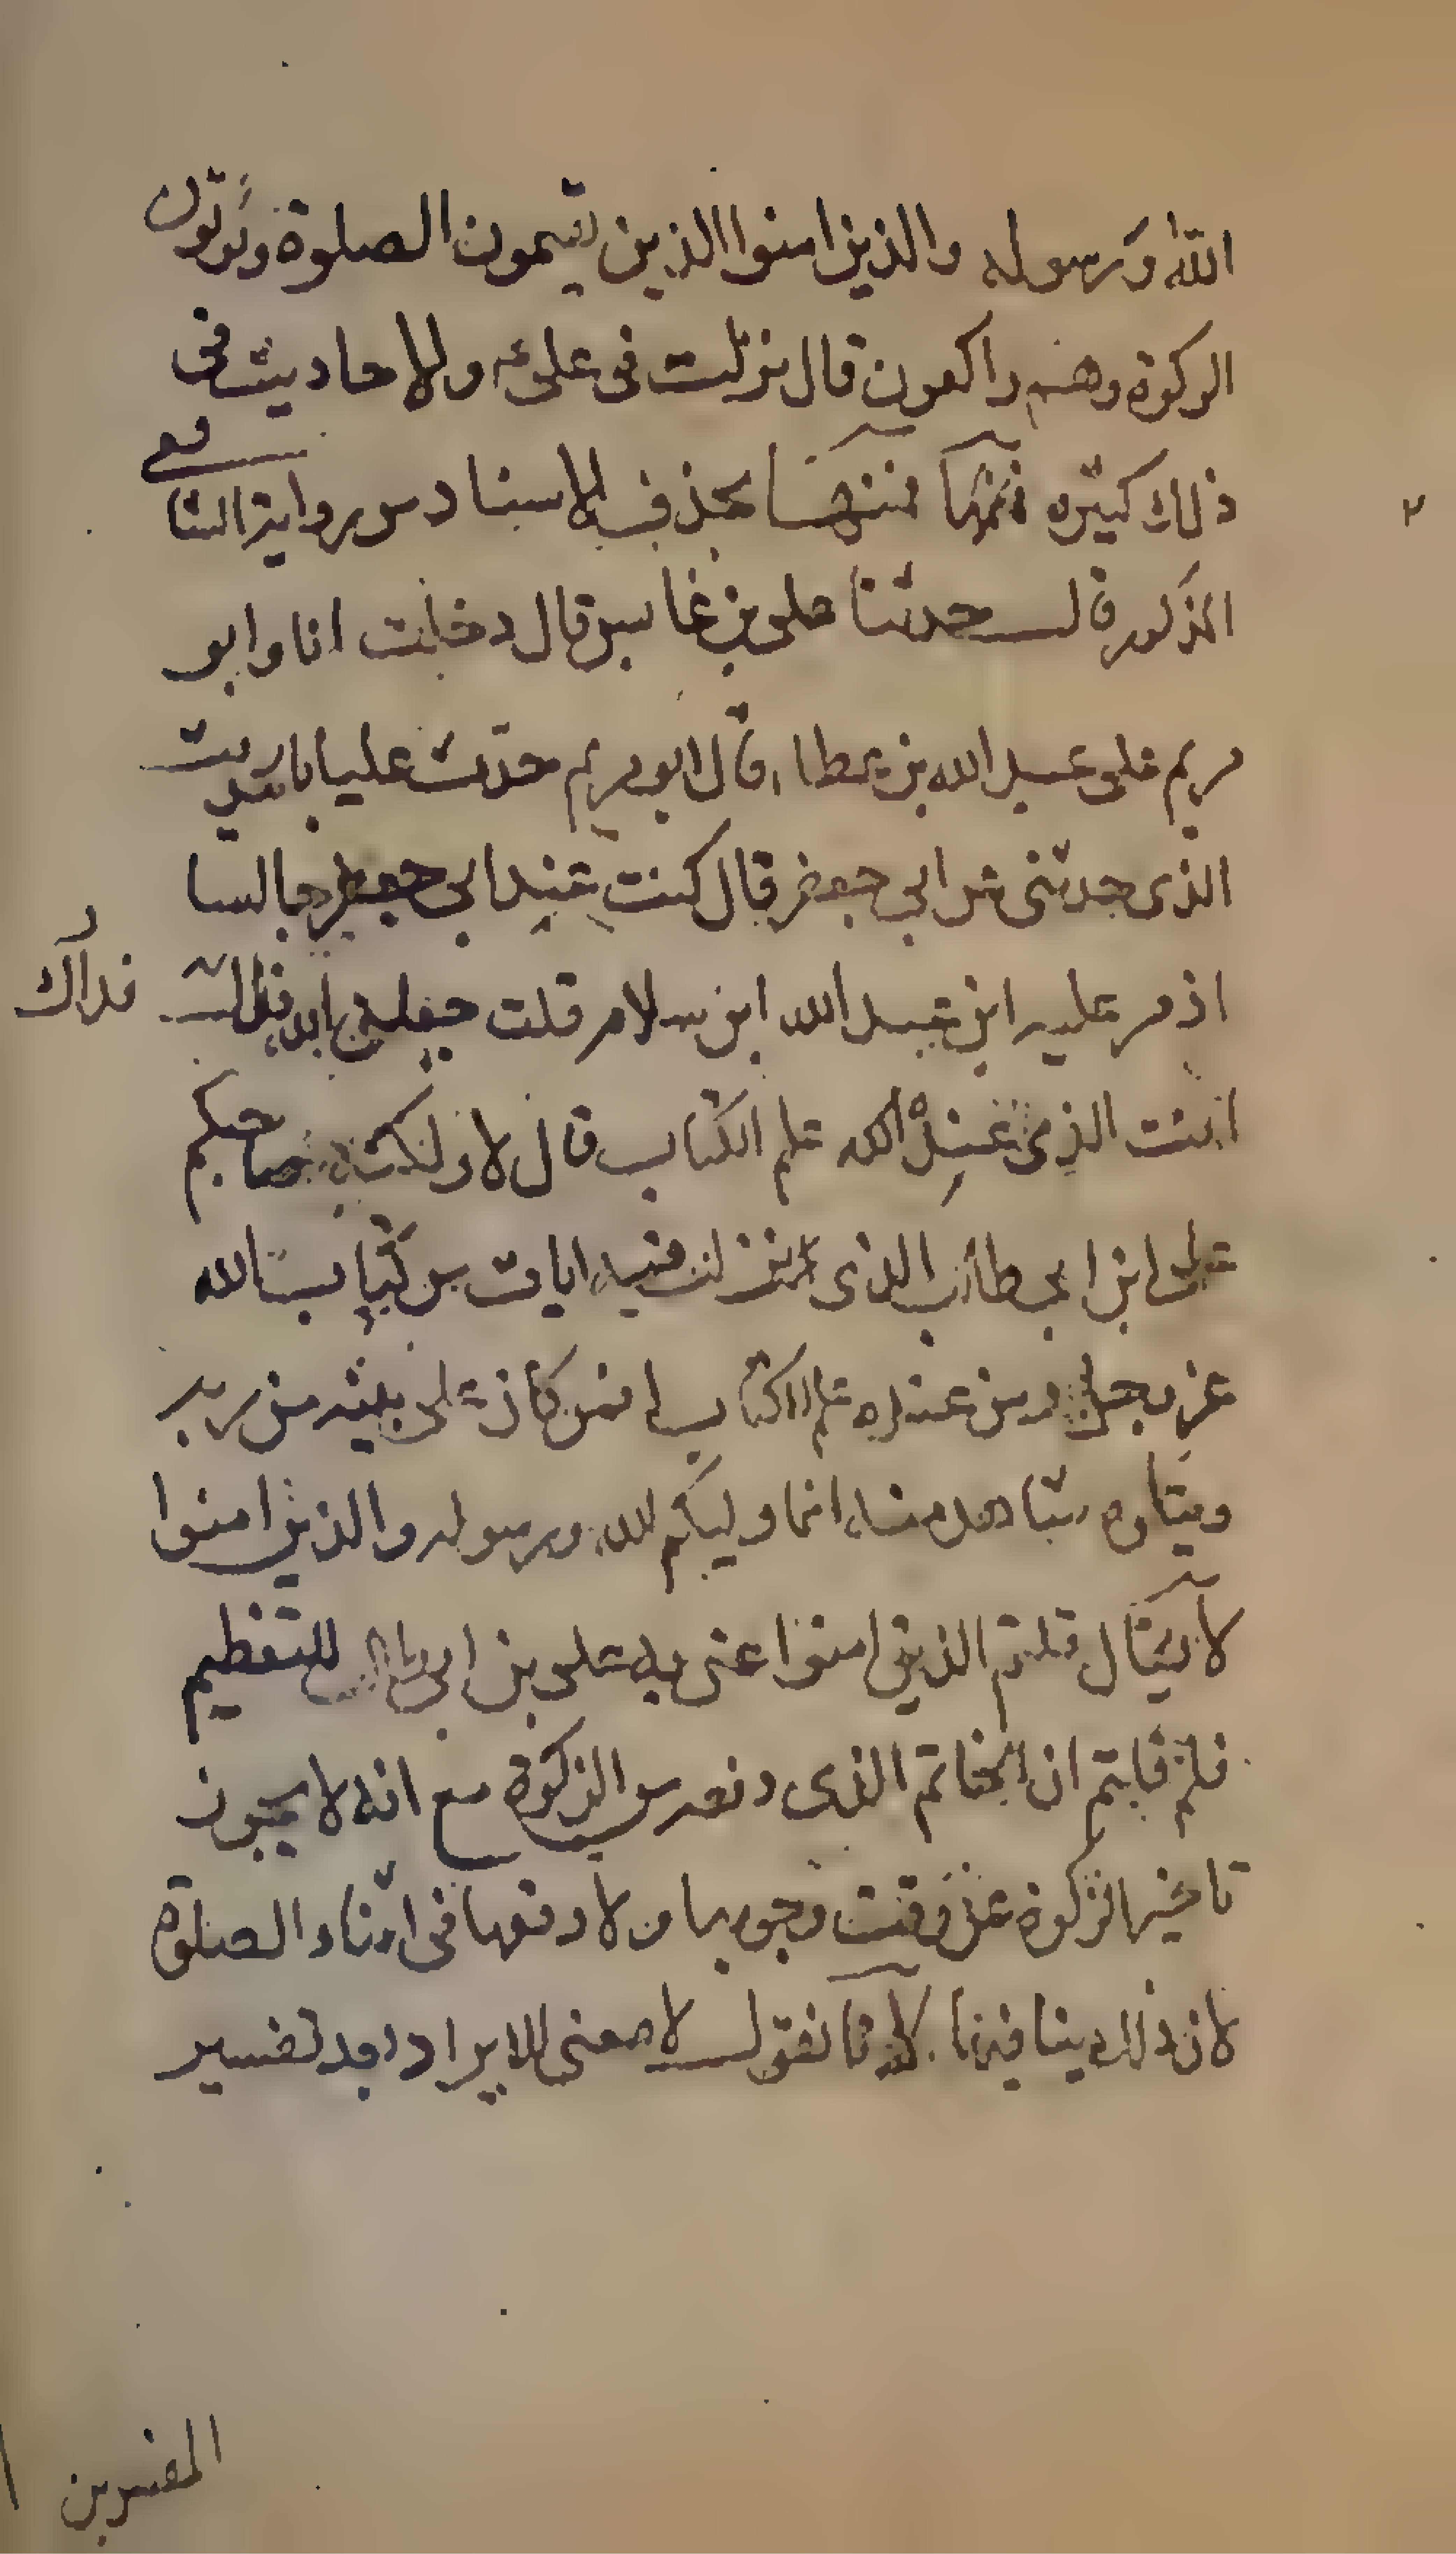 الله ورسوله والذين امنوا الذين يقيمون الصلوة ويؤتون
الزكوة وهم راكعون قال نزلت في علي ع والاحاديث في
ذلك كثيره فمنها بحذف الاسناد من رواية الشافعي
المذكور قال حدثنا علي بن عابس قال دخلت انا وابو
مريم على عبد الله بن عطا قال ابو مريم حدث عليا بالحديث
الذي حدثني عن ابي جعفر قال كنت عند ابي جعفر جالسا
اذ مر عليه ابن عبد الله ابن سلام قلت جعلني الله
فداك
الذي عنده علم الكتاب قال لا ولكنه صاحبكم
علي ابن ابي طالب الذي نزلت فيه ايات من كتاب الله
عز وجل ومن عنده علم الكتاب افمن كان على بينه من ربه
ويتلوه شاهد منه انما وليكم الله ورسوله والذين امنوا
لا يقال قلتم الذين امنوا عنى به علي بن ابي طالب ع للتعظيم
فلم قلتم ان الخاتم الذي دفعه من الزكوة مع انه لا يجوز
تاخير الزكوة عن وقت وجوبها ولا دفعها في اثناء الصلوة
لان ذلك ينافيها لانا نقول لا معنى للايراد بعد تفسير
المفسرين